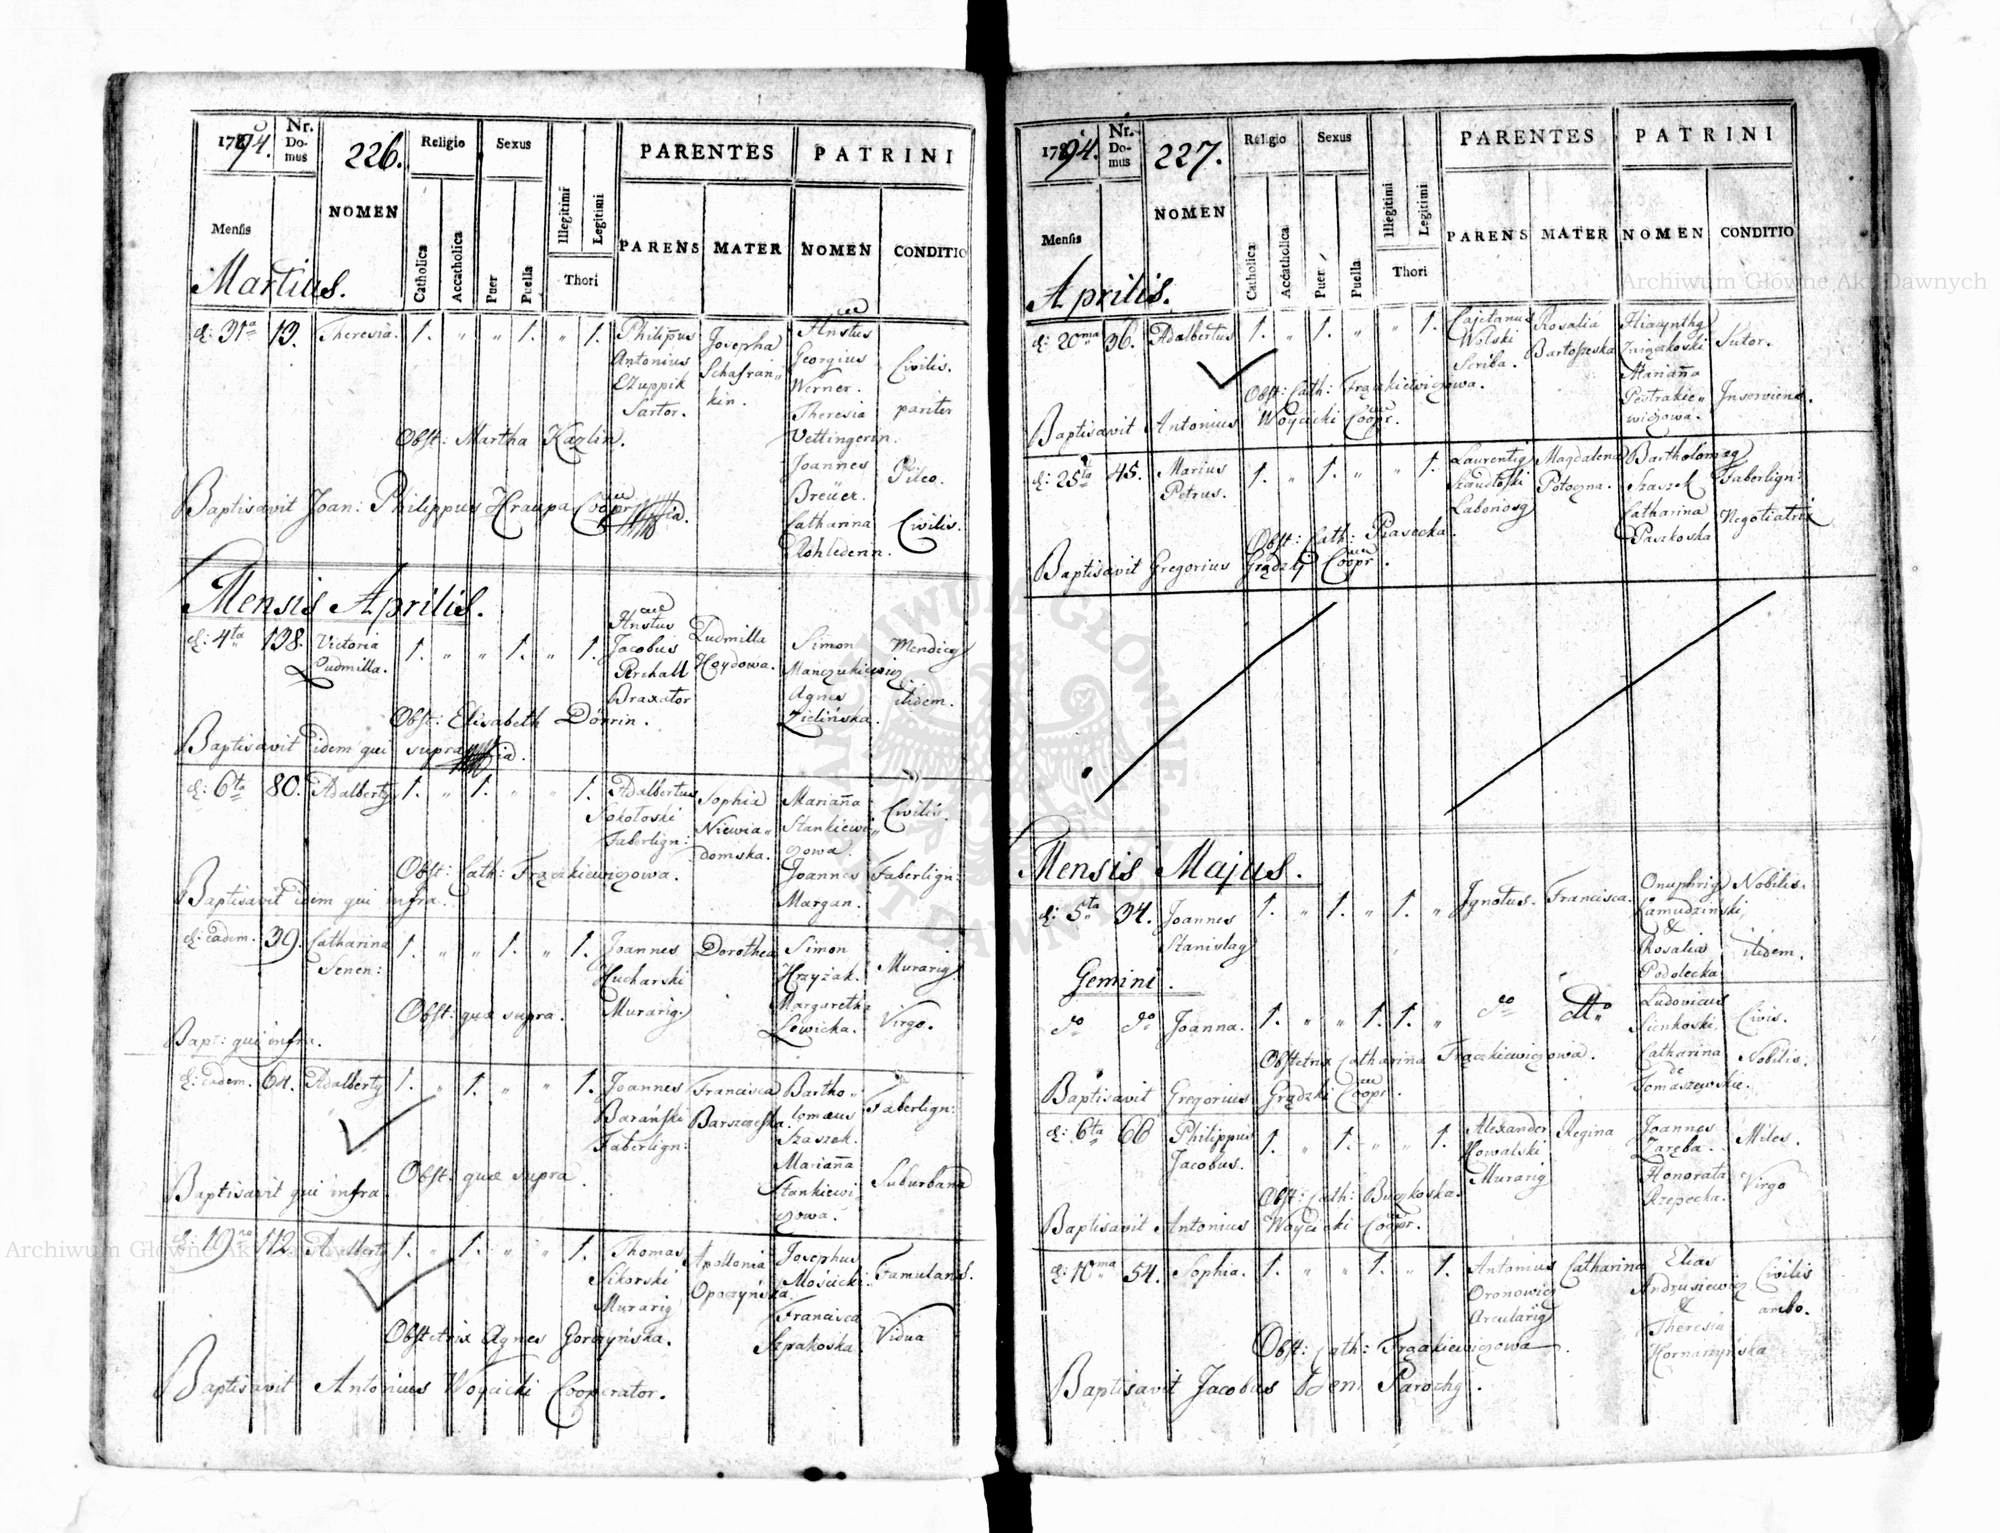 1794.
Nr. Domus
226.
NOMEN
Religio
Sexus
PARENTES
PATRINI
Mensis
Catholica
Accatholica
Puer
Puella
Illegitimi
Legitimi
Thori
PARENS
MATER
NOMEN
CONDITIO
Martius.
d: 31a 13. Theresia. 1. " " 1. " 1.
Philippus
Antonius
Czuppik
Sartor.
Josepha
Schafran"
kin.
Georgius
Werner.
Theresia
Vettingerin.
Civilis.
pariter
Obst: Martha Kazlin.
Joannes
Breüer.
Catharina
Rohlederin.
Pileo.
Civilis.
Baptisavit Joan: Philippus Hraupa Coopr
Mensis Aprilis.
d: 4ta 138. Victoria
Ludmilla.
1. " " 1. " 1.
Jacobus
Perchall
Braxator
Ludmilla
Hoydowa.
Simon
Manczukiewicz
Agnes
Zielińska.
Mendicg
itidem.
Obst: Elisabeth Dörrin.
Baptisavit idem qui supra
d: 6ta 80. Adalbertg 1. " 1. " " 1.
Adalbertus
Sokołoski
Faberlign:
Sophia
Niewia"
domska.
Marianna
Stankiewi"
czowa.
Joannes
Margan.
Civilis.
Faberlign:
Obst: Cath: Frączkiewiczowa.
Baptisavit idem qui infra.
d: eadem. 39. Catharina
Senen:
1. " " 1. " 1.
Joannes
Kucharski
Murarig
Dorothea
Simon
Krzyżak.
Margaretha
Lewicka.
Murarig
Virgo.
Obst: quæ supra.
Bapt: qui infra.
d: eadem. 64. Adalbertg 1. " 1. " " 1.
Joannes
Barański
Faberlign:
Francisca
Barszczeska.
Bartho"
lomæus
Szaszek.
Marianna
Stankiewi"
czowa.
Faberlign:
Suburbana
Obst: quæ supra
Baptisavit qui infra
d: 19na 112. Adalbertg 1. " 1. " " 1.
Thomas
Sikorski
Murarig
Apollonia
Opoczyńska.
Josephus
Mościcki
Francisca
Szpakoska.
Famulans.
Vidua
Obstetrix Agnes Gorczyńska.
Baptisavit Antonius Woycicki Cooperator.
1794.
Nr. Domus
227.
NOMEN
Religio
Sexus
PARENTES
PATRINI
Mensis
Catholica
Accatholica
Puer
Puella
Illegitimi
Legitimi
Thori
PARENS
MATER
NOMEN
CONDITIO
Aprilis.
d: 20ma 36. Adalbertus 1. " 1. " " 1.
Cajetanus
Wolski
Scriba.
Rosalia
Bartoszeska
Hiacynthg
Marianna
Pestrakie"
wiczowa.
Sutor.
Inserviens.
Obst: Cath: Frączkiewiczowa.
Baptisavit Antonius Woycicki Coopr.
d: 25ta 45. Marius
Petrus.
1. " 1. " " 1.
Laurentig
Laboriosg
Magdalena
Potoczna.
Bartholomæg
Szaszek
Catharina
Paszkoska
Faberlign:
Negotiatrix
Obst: Cath: Piasecka.
Baptisavit Gregorius Grądzki Coopr.
Mensis Majus.
d: 5ta 34. Joannes
Stanislag
1. " 1. " 1. "
Ignotus.
Francisca.
Onuphrig
Łamudziński,
&
Rosalia
Podolecka
Nobilis.
itidem.
Gemini.
do do Joanna. 1. " " 1. 1. "
do
dtto
Ludovicus
Sienkoski.
Catharina
de
Tomaszewskie.
Civis.
Nobilis.
Obstetrix Catharina Frączkiewiczowa.
Baptisavit Gregorius Grądzki Coopr.
d: 6ta 66 Philippus
Jacobus.
1. " 1. " " 1.
Alexander
Kowalski
Murarig
Regina
Joannes
Zaręba.
Honorata
Rzepecka.
Miles.
Virgo
Obst: Cath: Buczkoska.
Baptisavit Antonius Woycicki Coopr.
d: 10ma 54. Sophia. 1. " " 1. " 1.
Antonius
Oronowicz
Arcularig
Catharina
Elias
Andrusiewicz
&
Theresia
Kornaszyńska
Civilis
ambo.
Obst: Cath: Frączkiewiczowa.
Baptisavit Jacobus Beni Parochg.
Archiwum Główne Akt Dawnych
Archiwum Główne Akt Dawnych
ARCHIWUM GŁÓWNE AKT DAWNYCH